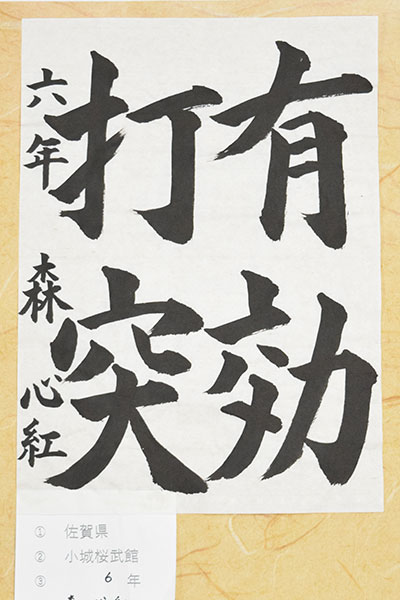 有効
打突
六年 森心紅
① 佐賀県
② 小城桜武館
③ 6 年